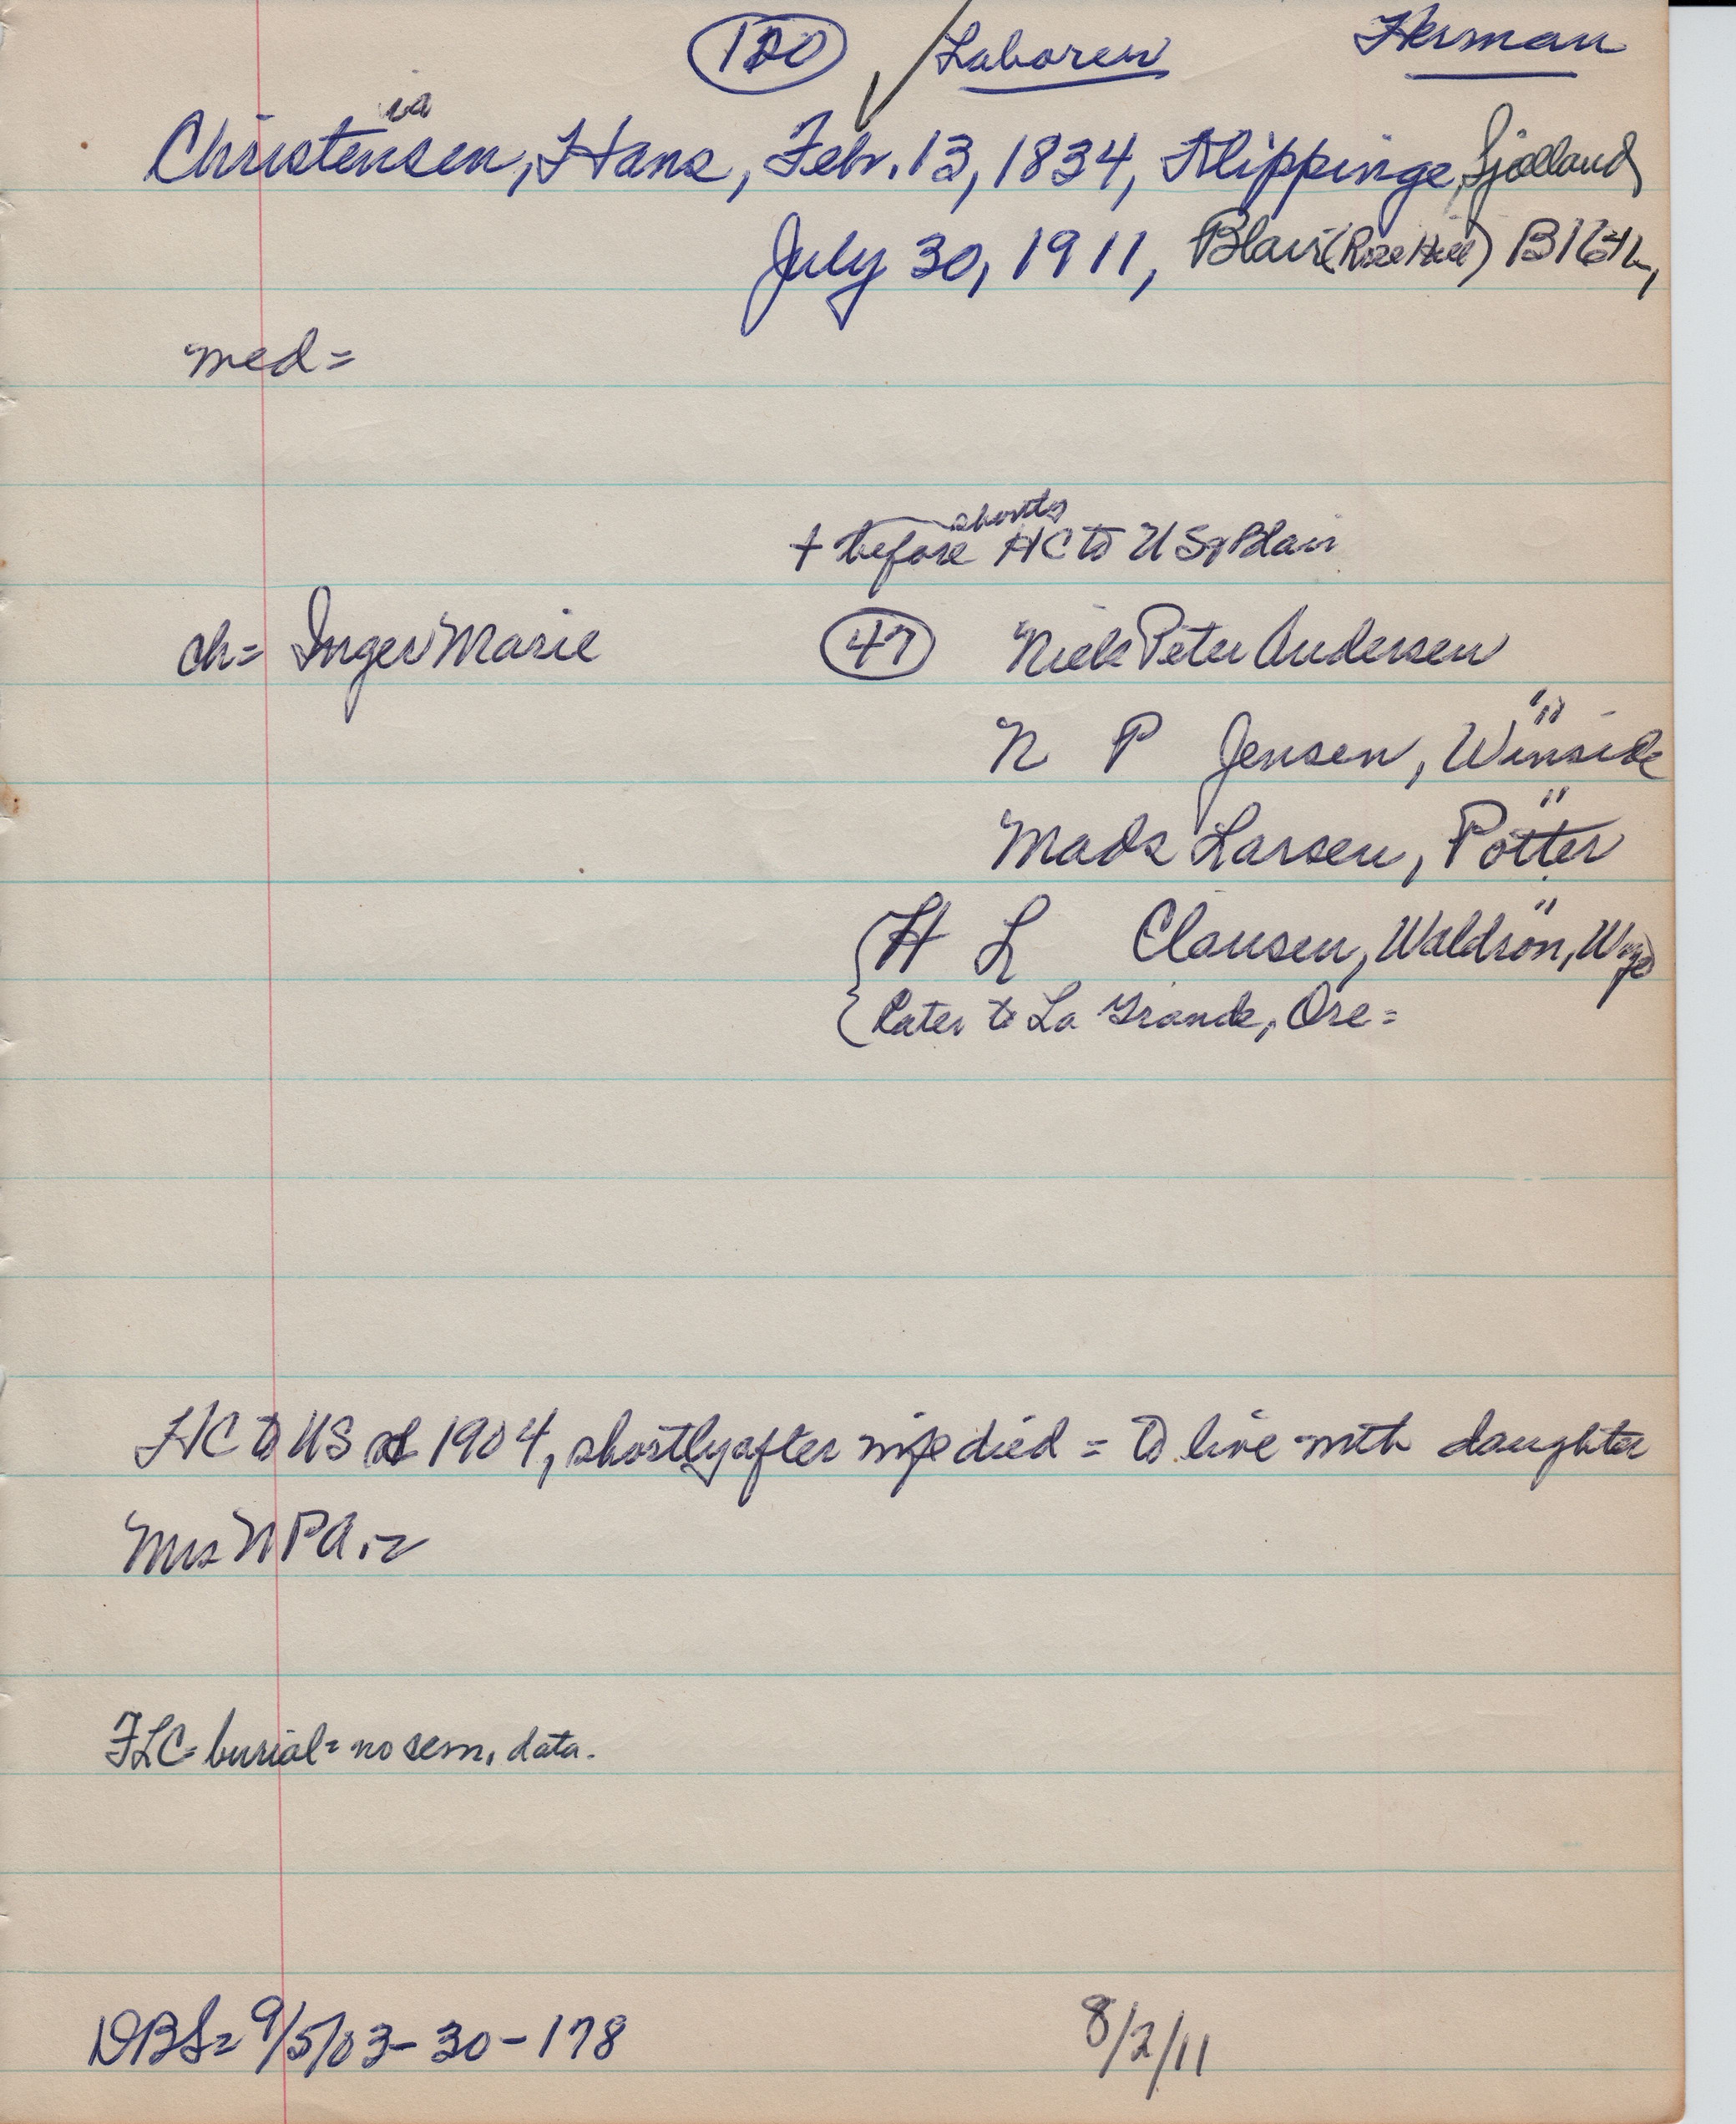 120 Laborer Herman
ia
Christensen, Hans, Febr. 13, 1834, Klippinge, Sjælland
July 30, 1911, Blair (Rose Hill) B164L,
med =
shortly
+ before HC to US & Blair
ch = Inger Marie 47 Niels Peter Andersen
N P Jensen, Winside
Mads Larsen, Potter
H L Clausen, Waldron, Wyo
later to La Grande, Ore =
HC to US 1904, shortly after wife died = to live with daughter
Mrs NPA. =
FLC = burial = no sem. data.
DBS = 9/5/03 - 30 - 178 8/2/11